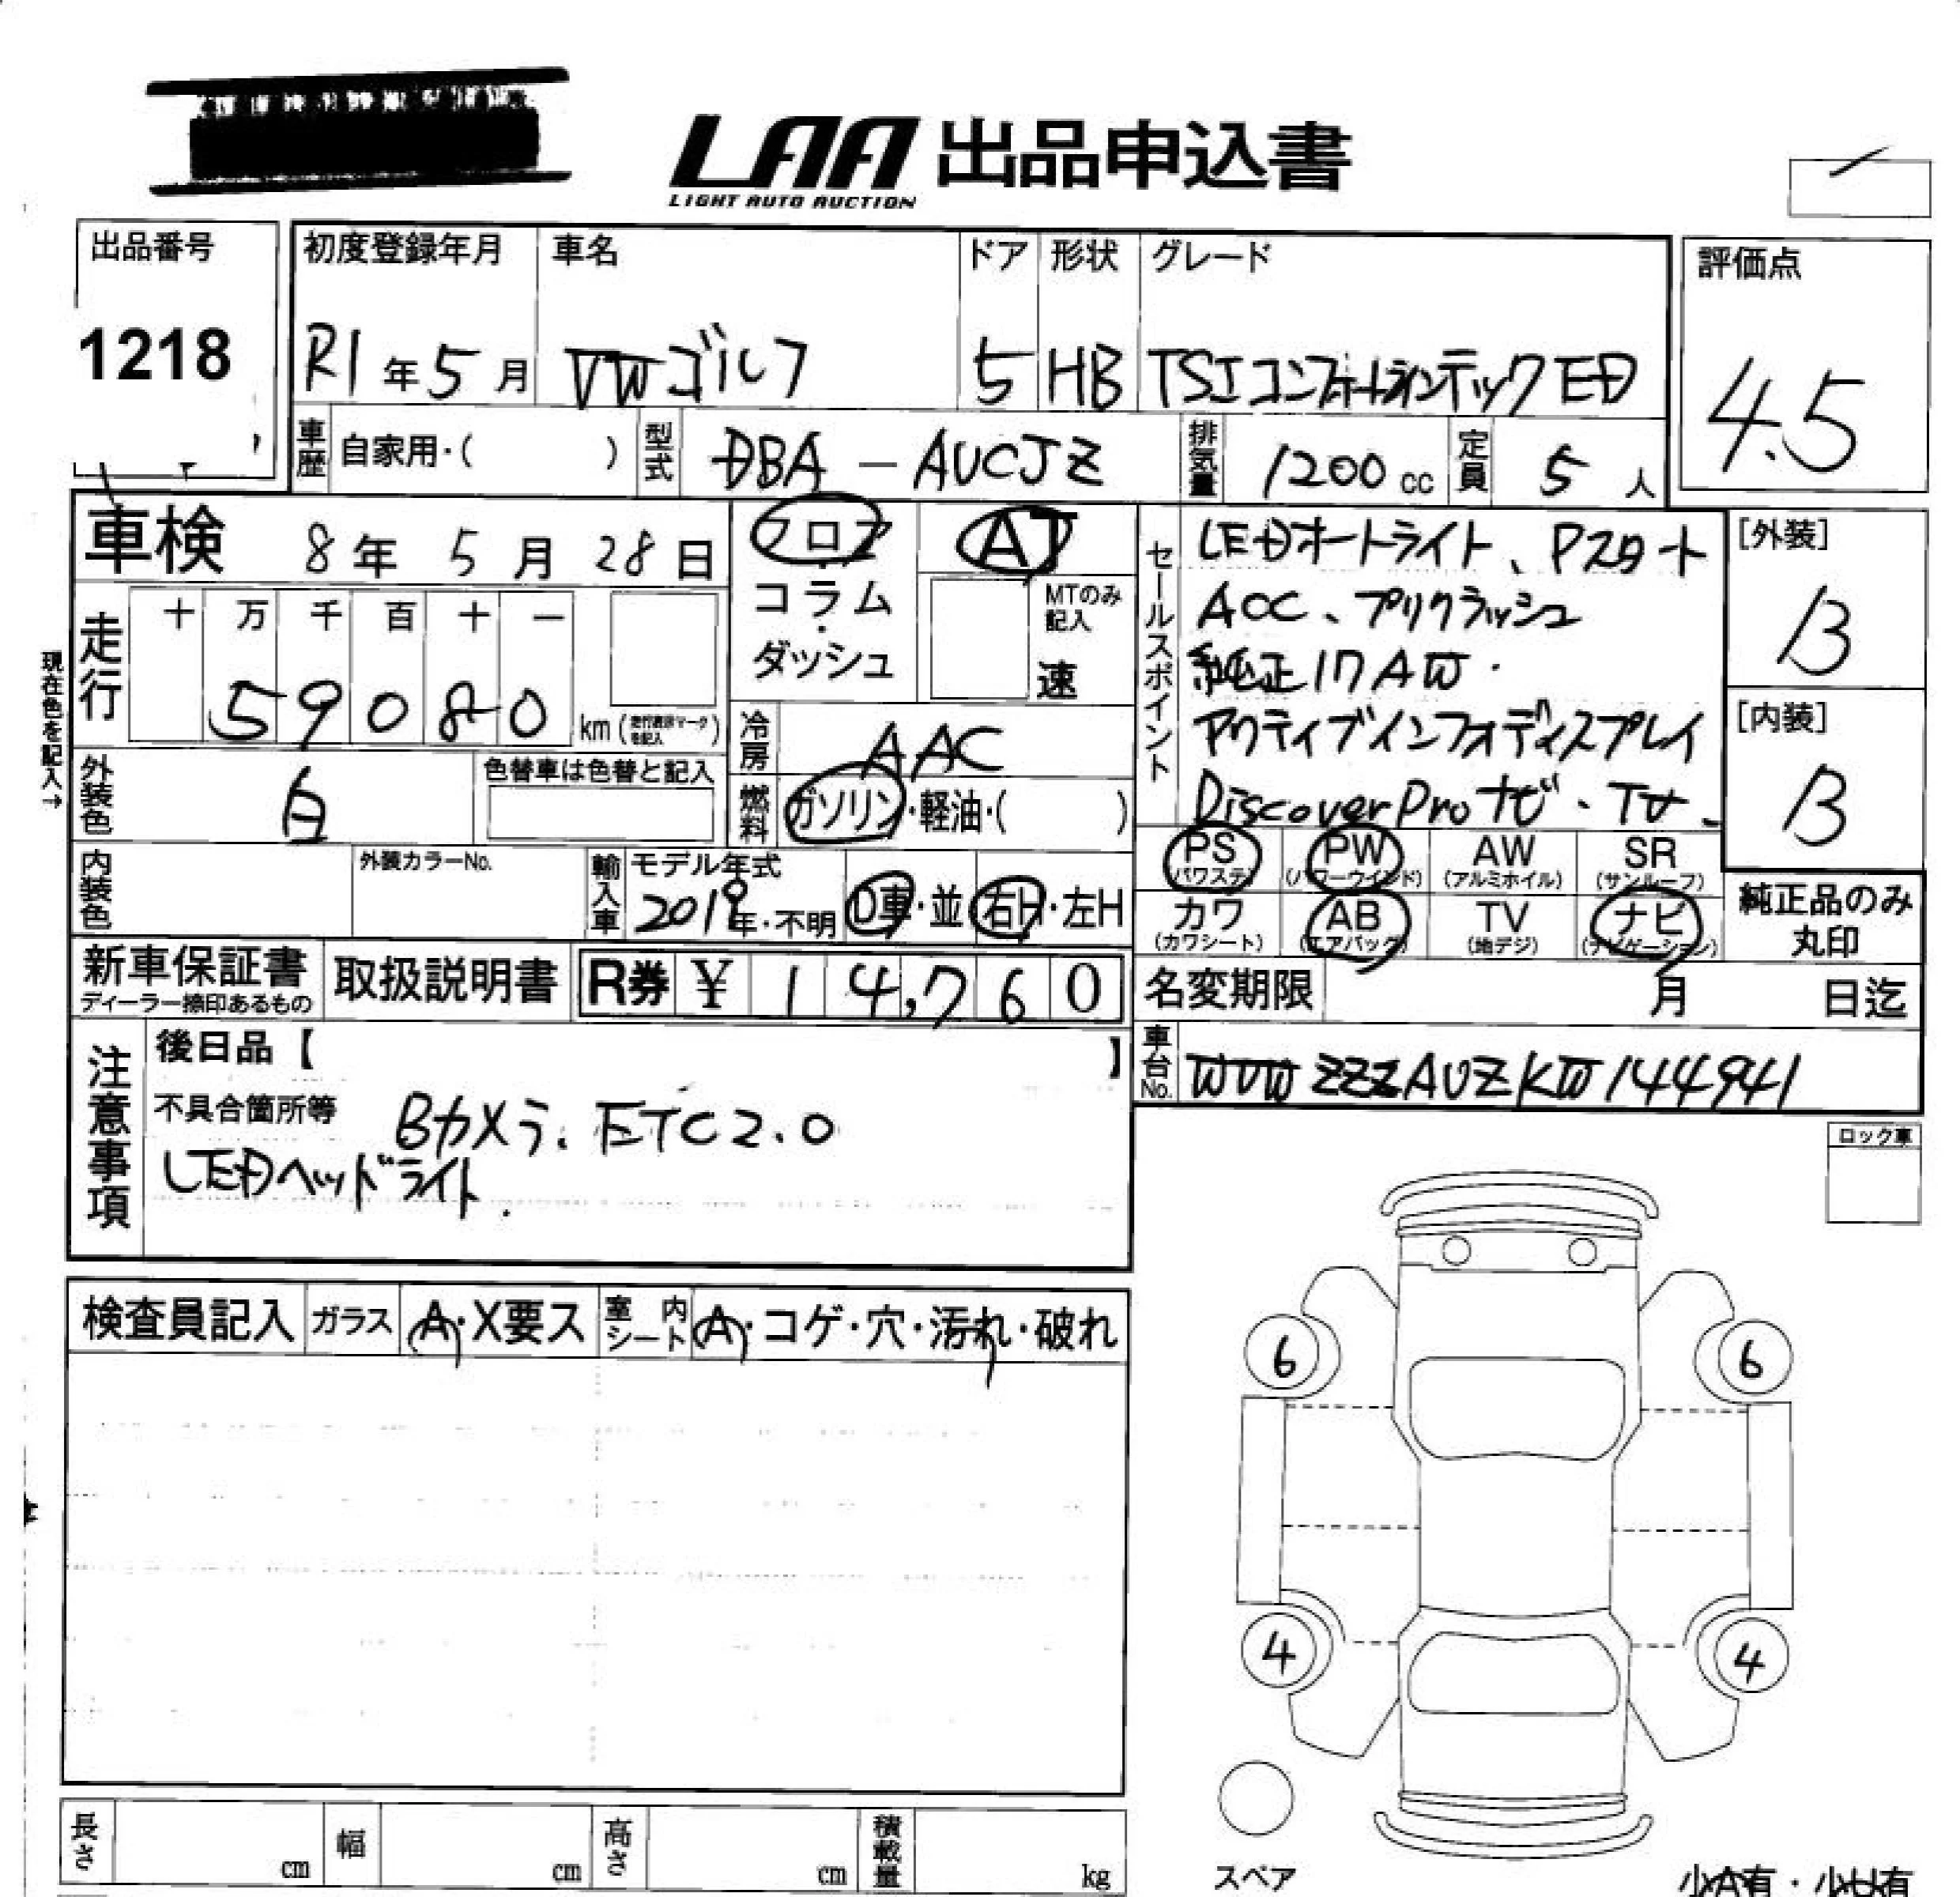 LAA 出品申込書
LIGHT AUTO AUCTION
出品番号
1218
初度登録年月 車名 ドア 形状 グレード
R1年5月 VWゴルフ 5 HB TSIコンフォートラインテックED
評価点
4.5
車歴 自家用・( ) 型式 DBA－AUCJZ 排気量 1200cc 定員 5人
車検 8年5月28日
フロア
コラム
・
ダッシュ
AT
MTのみ
記入
速
セールスポイント
LEDオートライト、Pスタート
ACC、プリクラッシュ
純正17AW・
アクティブインフォディスプレイ
Discover Proナビ・TV
[外装]
B
[内装]
B
現在色を記入→
走行 十 万 千 百 十 一
59080 km
冷房 AAC
外装色 白 色替車は色替と記入
燃料 ガソリン・軽油・( )
内装色 外装カラーNo.
輸入車 モデル年式
2019年・不明 D車・並 右H・左H
PS PW AW SR
(パワステ) (パワーウインド) (アルミホイル) (サンルーフ)
カワ AB TV ナビ
(カワシート) (エアバッグ) (地デジ) (ナビゲーション)
純正品のみ
丸印
新車保証書
ディーラー捺印あるもの
取扱説明書
R券 ¥ 14,760
名変期限 月 日迄
車台No. WVWZZZAUZKW144941
注意事項
後日品【 】
不具合箇所等 Bカメラ、ETC2.0
LEDヘッドライト
ロック車
検査員記入 ガラス A・X要ス 室内シート A・コゲ・穴・汚れ・破れ
6 6
4 4
スペア
長さ cm 幅 cm 高さ cm 積載量 kg
小A有・小U有